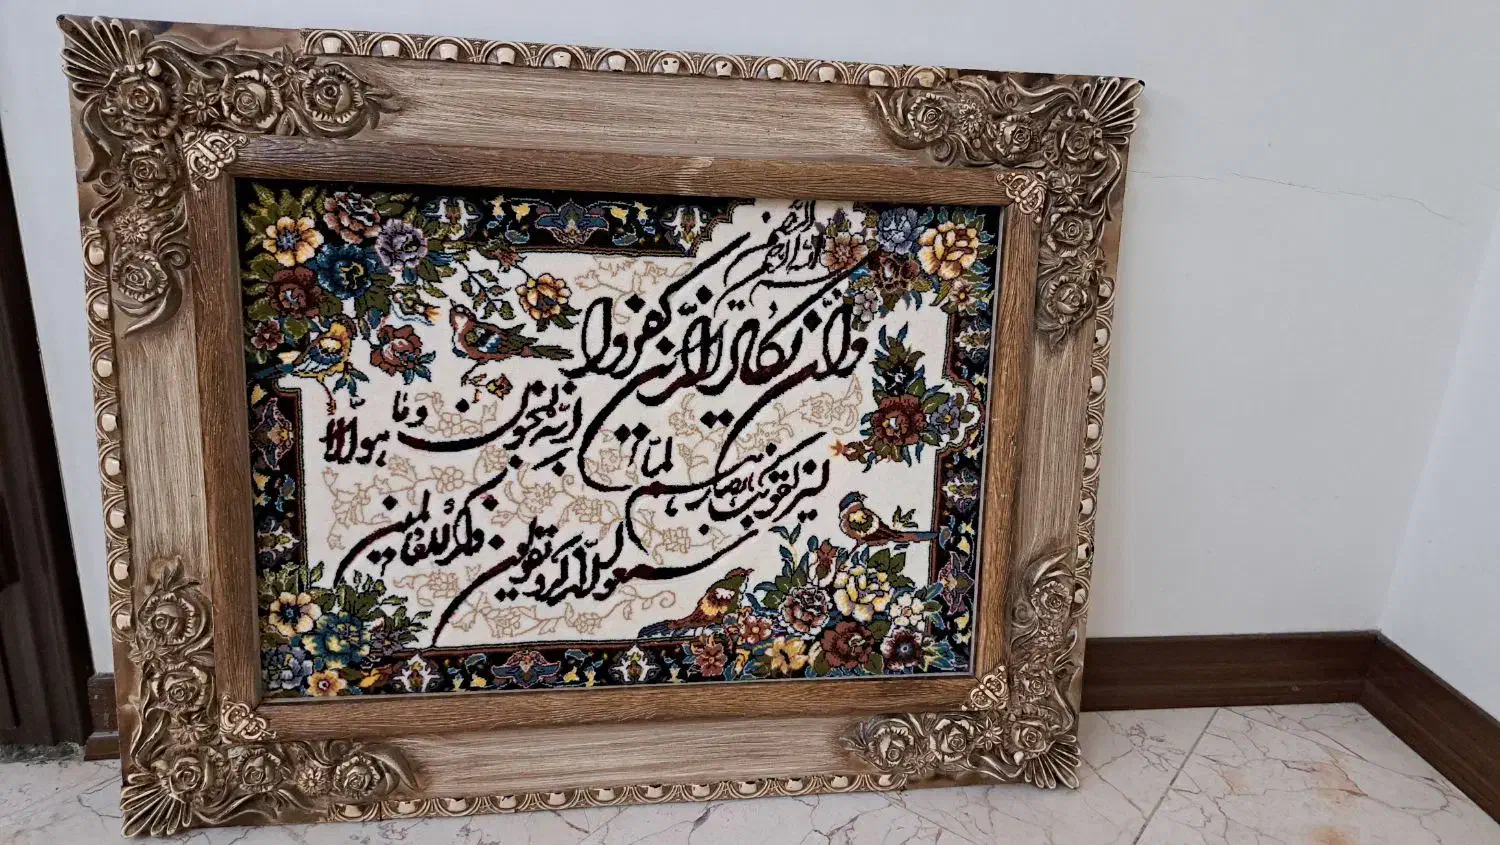 بسم الله الرحمن الرحيم
وَإِن يَكَادُ الَّذِينَ كَفَرُوا
لیزلقونک بابصارهم لمّا
سمعوا الذّکر و یقولون
انّه لمجنون و ما هو الّا
ذکر للعالمین